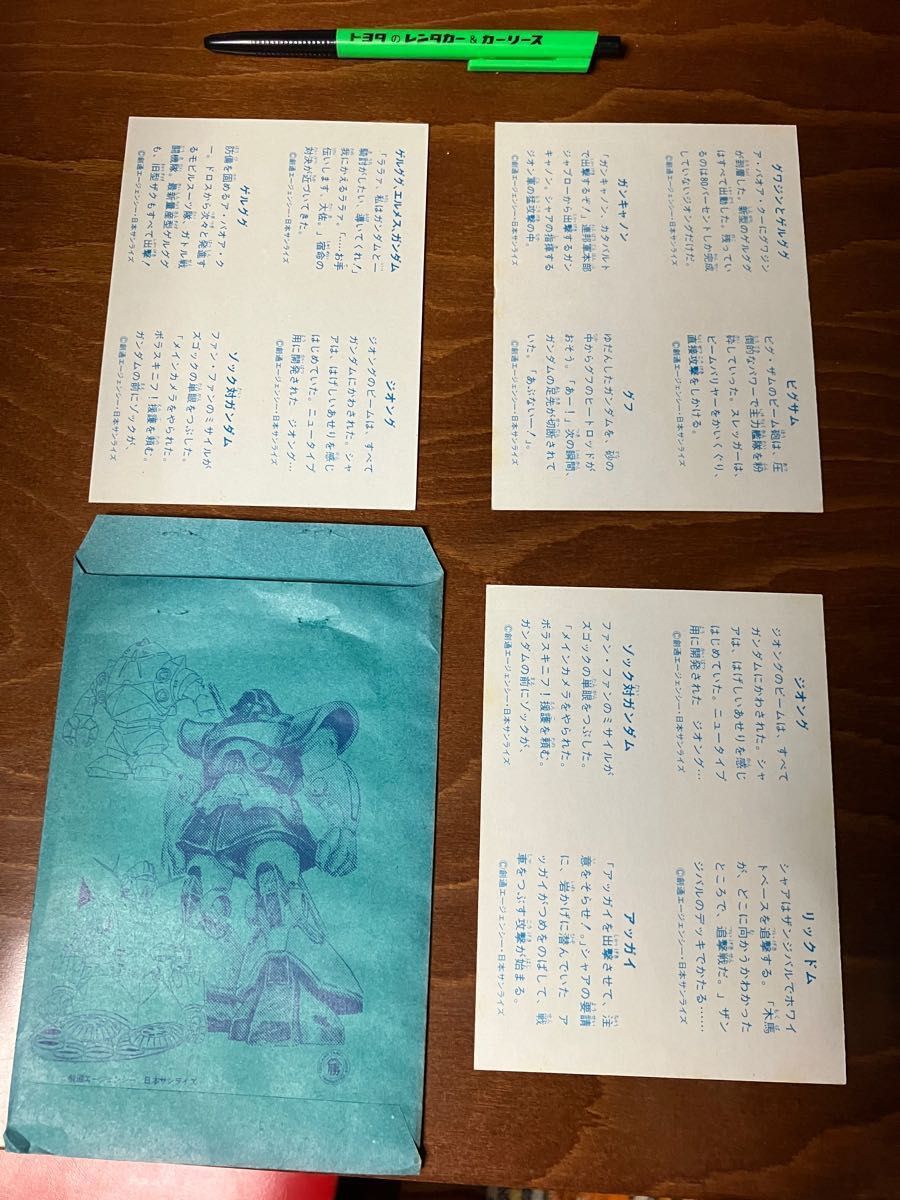 トヨタのレンタカー&カーリース
ゲルググ、エルメス、ガンダム
「ララァ、私はガンダムと一
騎討がしたい、導いてくれ！」
我にかえるララァ。「……お手
伝いします、大佐。」宿命の
対決が近づいてきた。
©創通エージェンシー・日本サンライズ
ジオング
ジオングのビームは、すべて
ガンダムにかわされた。シャ
アは、はげしいあせりを感じ
はじめていた。ニュータイプ
用に開発された ジオング…
©創通エージェンシー・日本サンライズ
ゲルググ
防備を固めるア・バオア・ク
ー。ドロスから次々と発進す
るモビルスーツ隊、ガトル戦
闘機隊。最新量産型ゲルググ
も、旧型ザクもすべて出撃！
©創通エージェンシー・日本サンライズ
ゾック対ガンダム
ファン・ファンのミサイルが
ズゴックの単眼をつぶした。
「メインカメラをやられた。
ボラスキニフ！援護を頼む。
ガンダムの前にゾックが、
©創通エージェンシー・日本サンライズ
グワジンとゲルググ
ア・バオア・クーにグワジン
が到着した。新型のゲルググ
はすべて出動した。残ってい
るのは80パーセントしか完成
していないジオングだけだ。
©創通エージェンシー・日本サンライズ
ビグザム
ビグ・ザムのビーム砲は、圧
倒的なパワーで主力艦隊を粉
砕していった。スレッガーは、
ビームバリヤーをかいくぐり、
直接攻撃をしかける。
©創通エージェンシー・日本サンライズ
ガンキャノン
「ガンキャノン、カタパルト
で出撃するぞ！」連邦軍本部
ジャブローから出撃するガン
キャノン、シャアの指揮する
ジオン軍の猛攻撃の中。
©創通エージェンシー・日本サンライズ
グフ
ゆだんしたガンダムを、砂の
中からグフのヒートロッドが
おそう。「あー！」次の瞬間、
ガンダムの足先が切断されて
いた。「あぶないー！」。
©創通エージェンシー・日本サンライズ
ジオング
ジオングのビームは、すべて
ガンダムにかわされた。シャ
アは、はげしいあせりを感じ
はじめていた。ニュータイプ
用に開発された ジオング…
©創通エージェンシー・日本サンライズ
リックドム
シャアはザンジバルでホワイ
トベースを追撃する。「木馬
が、どこに向かうかわかった
ところで、追撃戦だ。」ザン
ジバルのデッキでかたる……
©創通エージェンシー・日本サンライズ
ゾック対ガンダム
ファン・ファンのミサイルが
ズゴックの単眼をつぶした。
「メインカメラをやられた。
ボラスキニフ！援護を頼む。
ガンダムの前にゾックが、
©創通エージェンシー・日本サンライズ
アッガイ
「アッガイを出撃させて、注
意をそらせ！。」シャアの要請
に、岩かげに潜んでいた ア
ッガイがつめをのばして、戦
車をつぶす攻撃が始まる。
©創通エージェンシー・日本サンライズ
創通エージェンシー 日本サンライズ